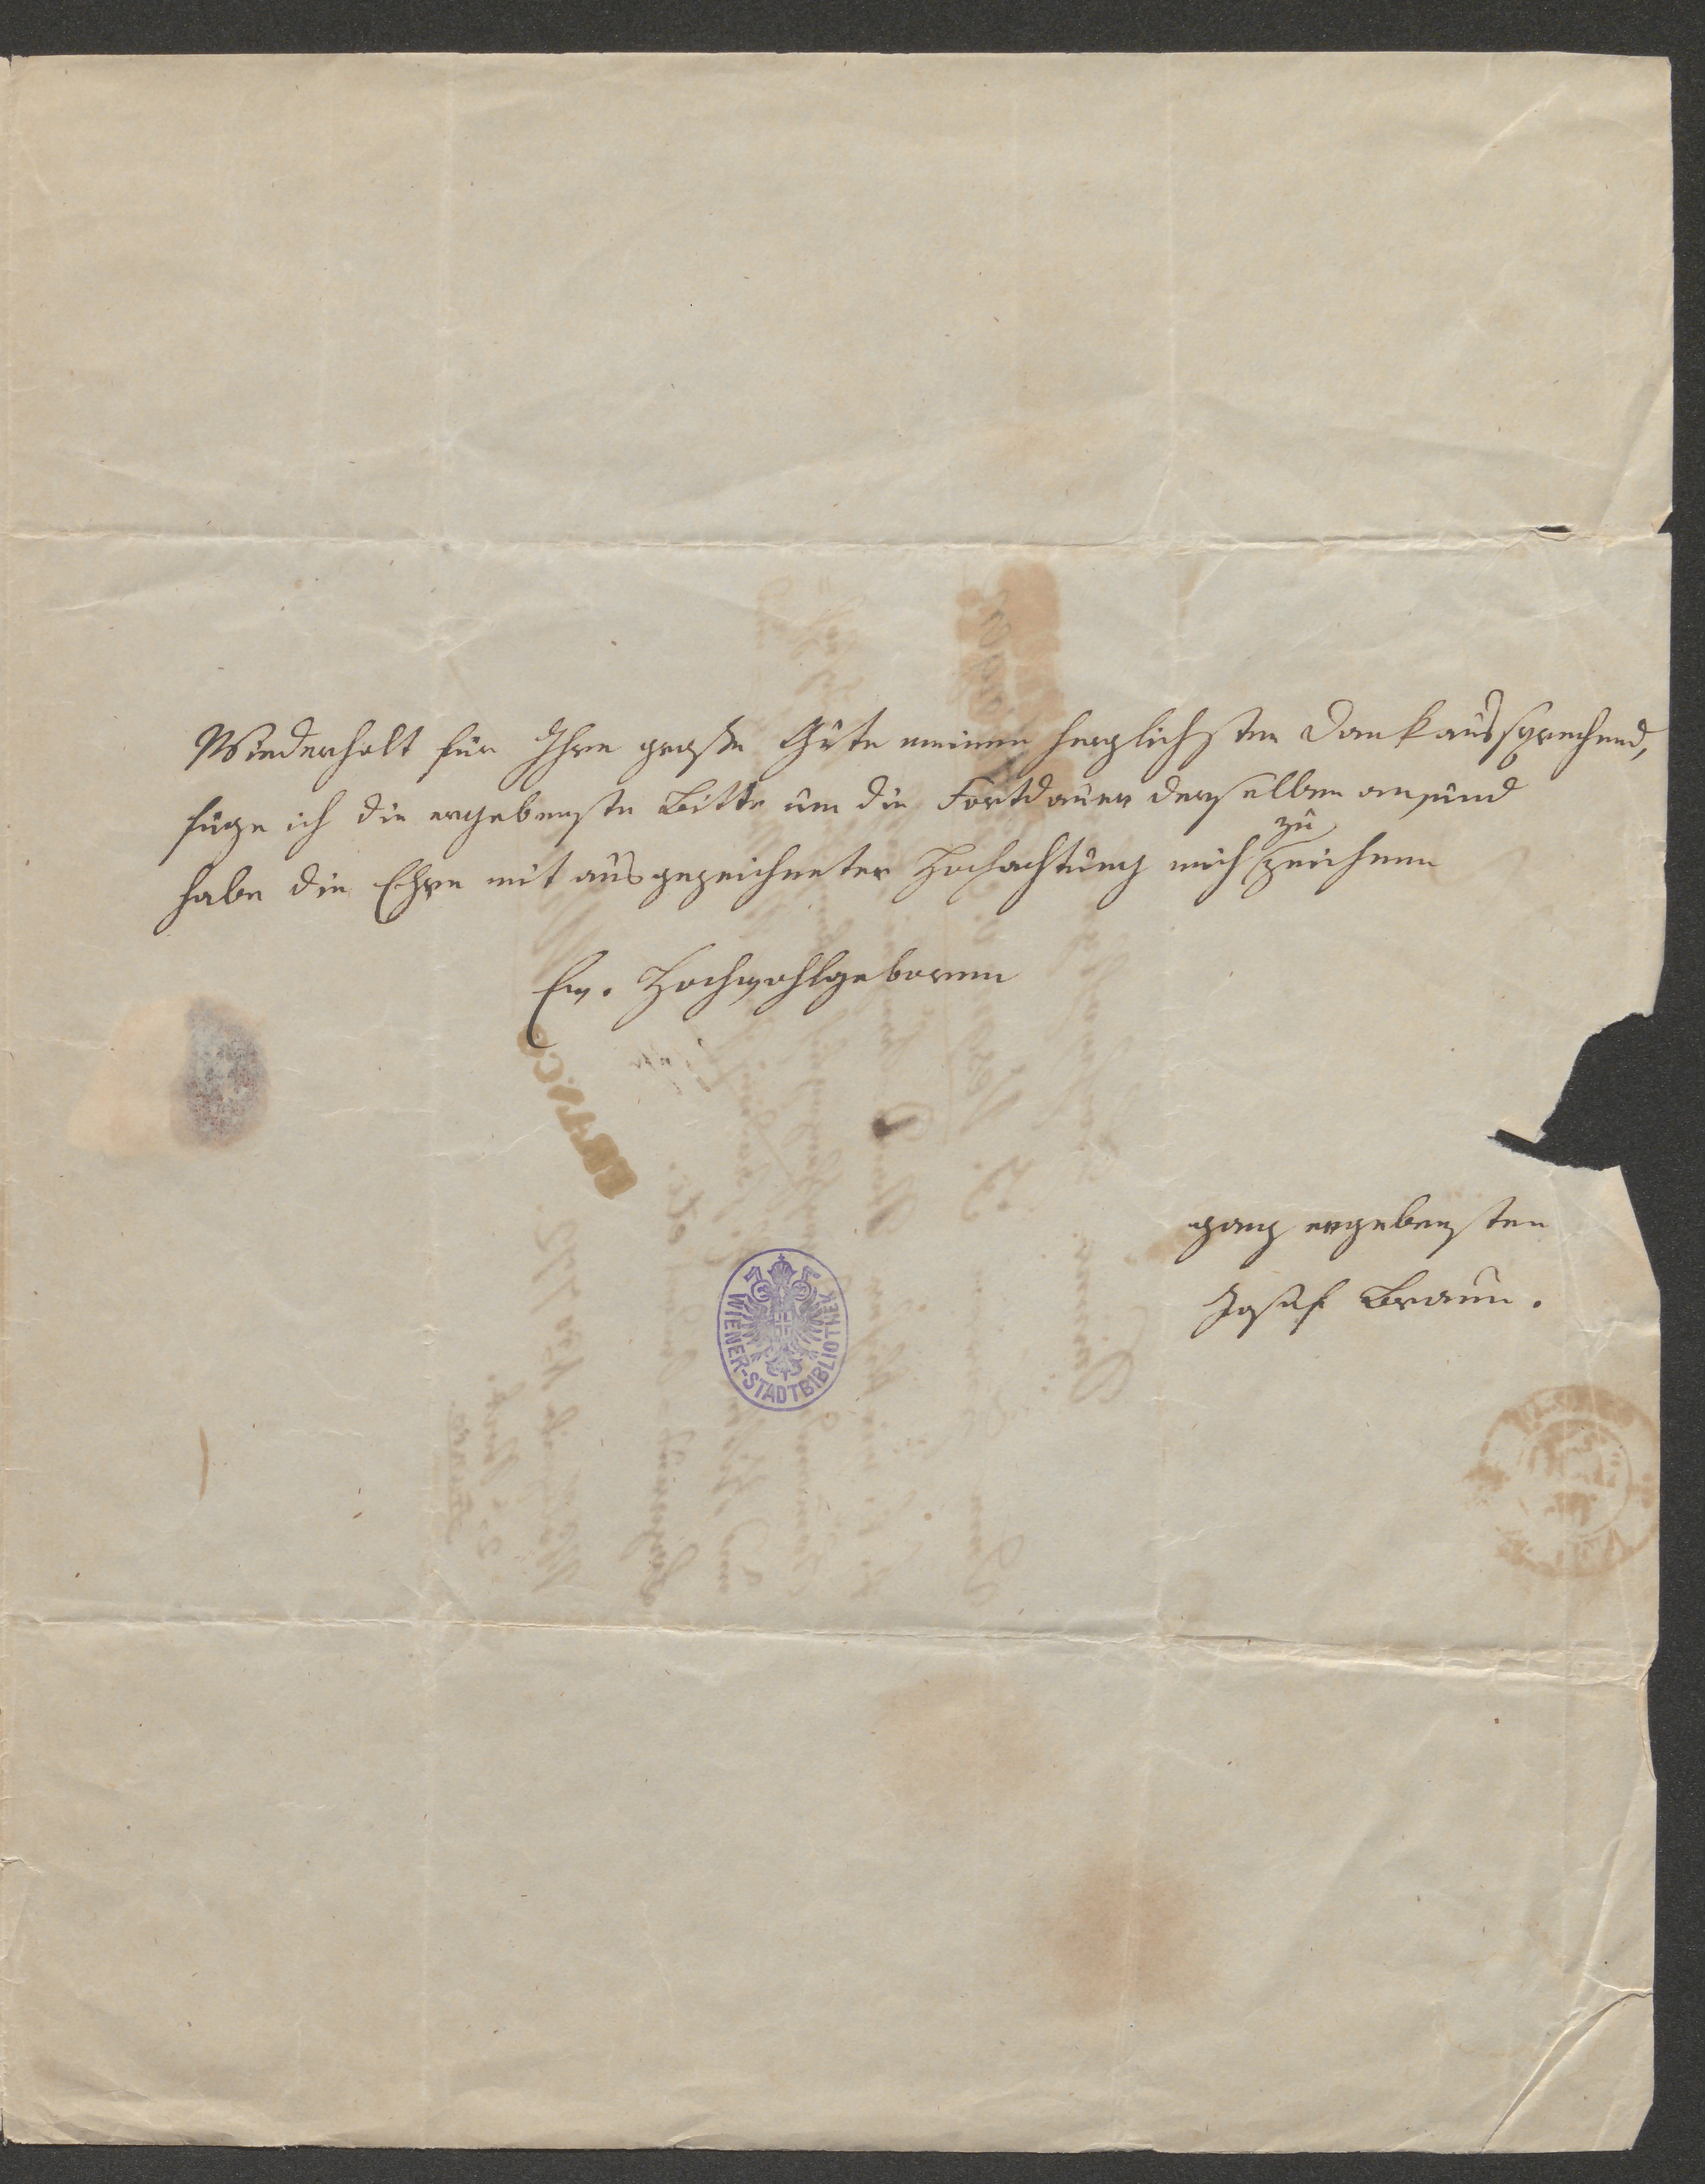 Wiederholt für Ihre große Güte meinen herzlichsten Dank aussprechend,
füge ich die ergebenste Bitte um die Fortdauer derselben an, und
habe die Ehre mit ausgezeichneter Hochachtung mich zu zeichnen
Ew. Hochwohlgeboren
ganz ergebensten
Josef Braun.
WIENER-STADTBIBLIOTHEK